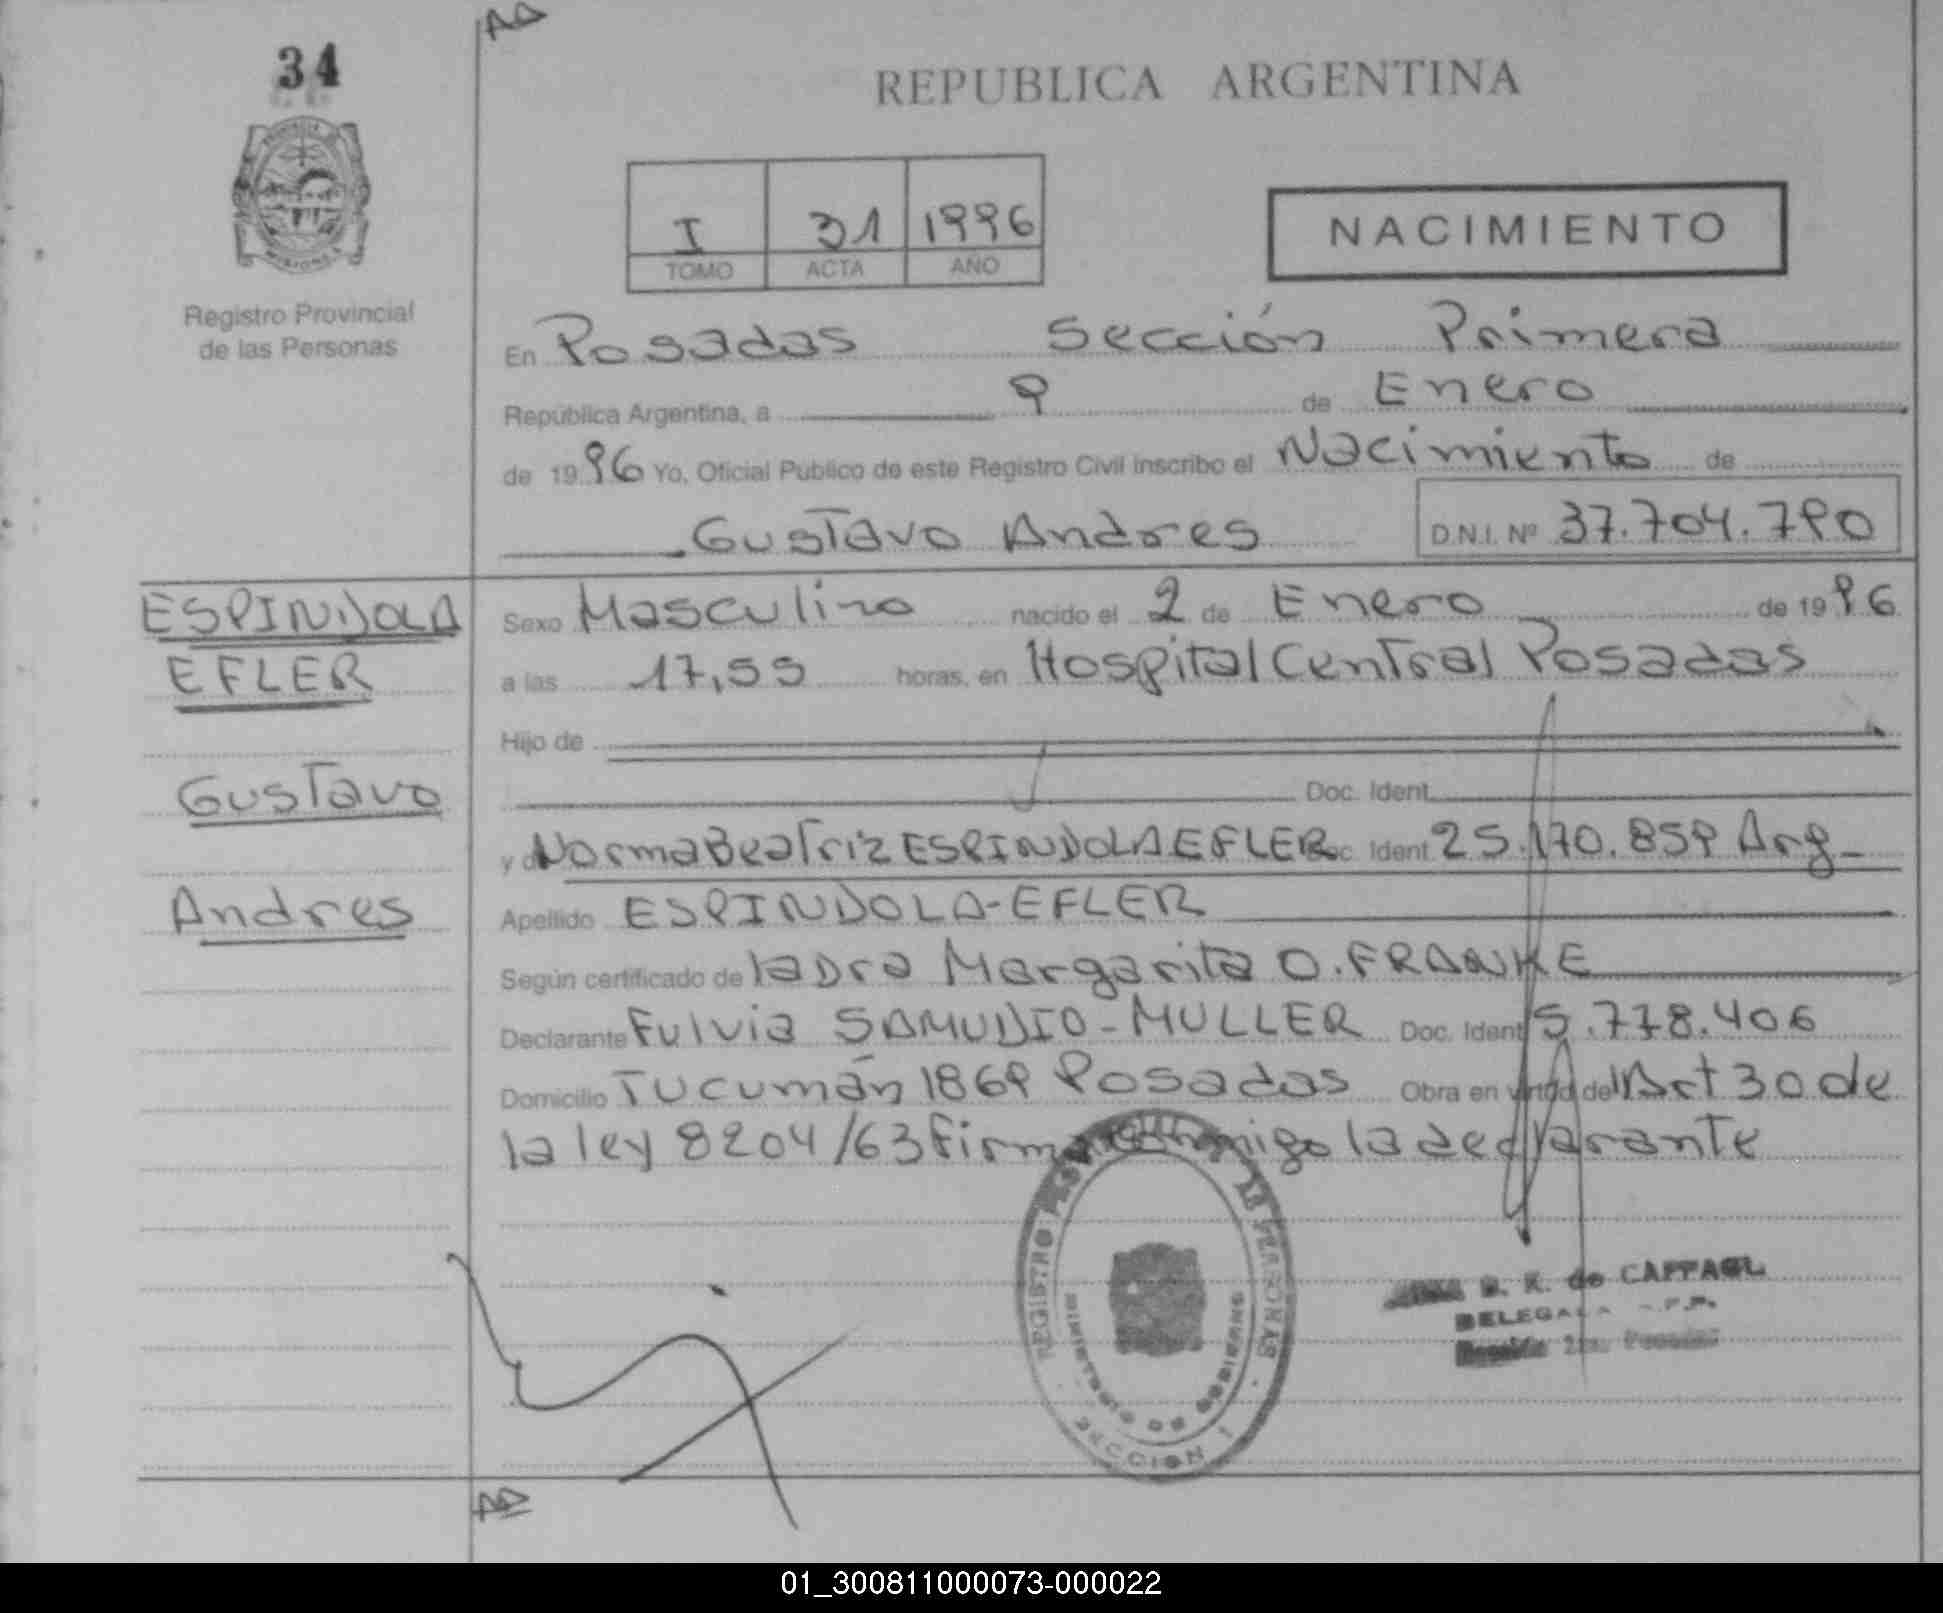 34
REPUBLICA ARGENTINA
I 31 1996
TOMO ACTA AÑO
NACIMIENTO
Registro Provincial
de las Personas
En Posadas Sección Primera
República Argentina, a 9 de Enero
de 1996 Yo, Oficial Publico de este Registro Civil inscribo el Nacimiento de
Gustavo Andres D.N.I. Nº 37.704.790
ESPINDOLA
EFLER
Gustavo
Andres
Sexo Masculino nacido el 2 de Enero de 1996
a las 17,55 horas, en Hospital Central Posadas
Hijo de
Doc. Ident.
y de Norma Beatriz ESPINDOLA EFLER Doc. Ident. 25.170.859 Arg
Apellido ESPINDOLA-EFLER
Según certificado de la Dra Margarita O. FRANKE
Declarante Fulvia SAMUDIO-MULLER Doc. Ident. 5.778.406
Domicilio Tucumán 1869 Posadas Obra en virtud del Art 30 de
la ley 8204/63 firma conmigo la declarante
REGISTRO DE LAS PERSONAS
MINISTERIO DE GOBIERNO
SECCION 1
de CAFFAGL
01_300811000073-000022